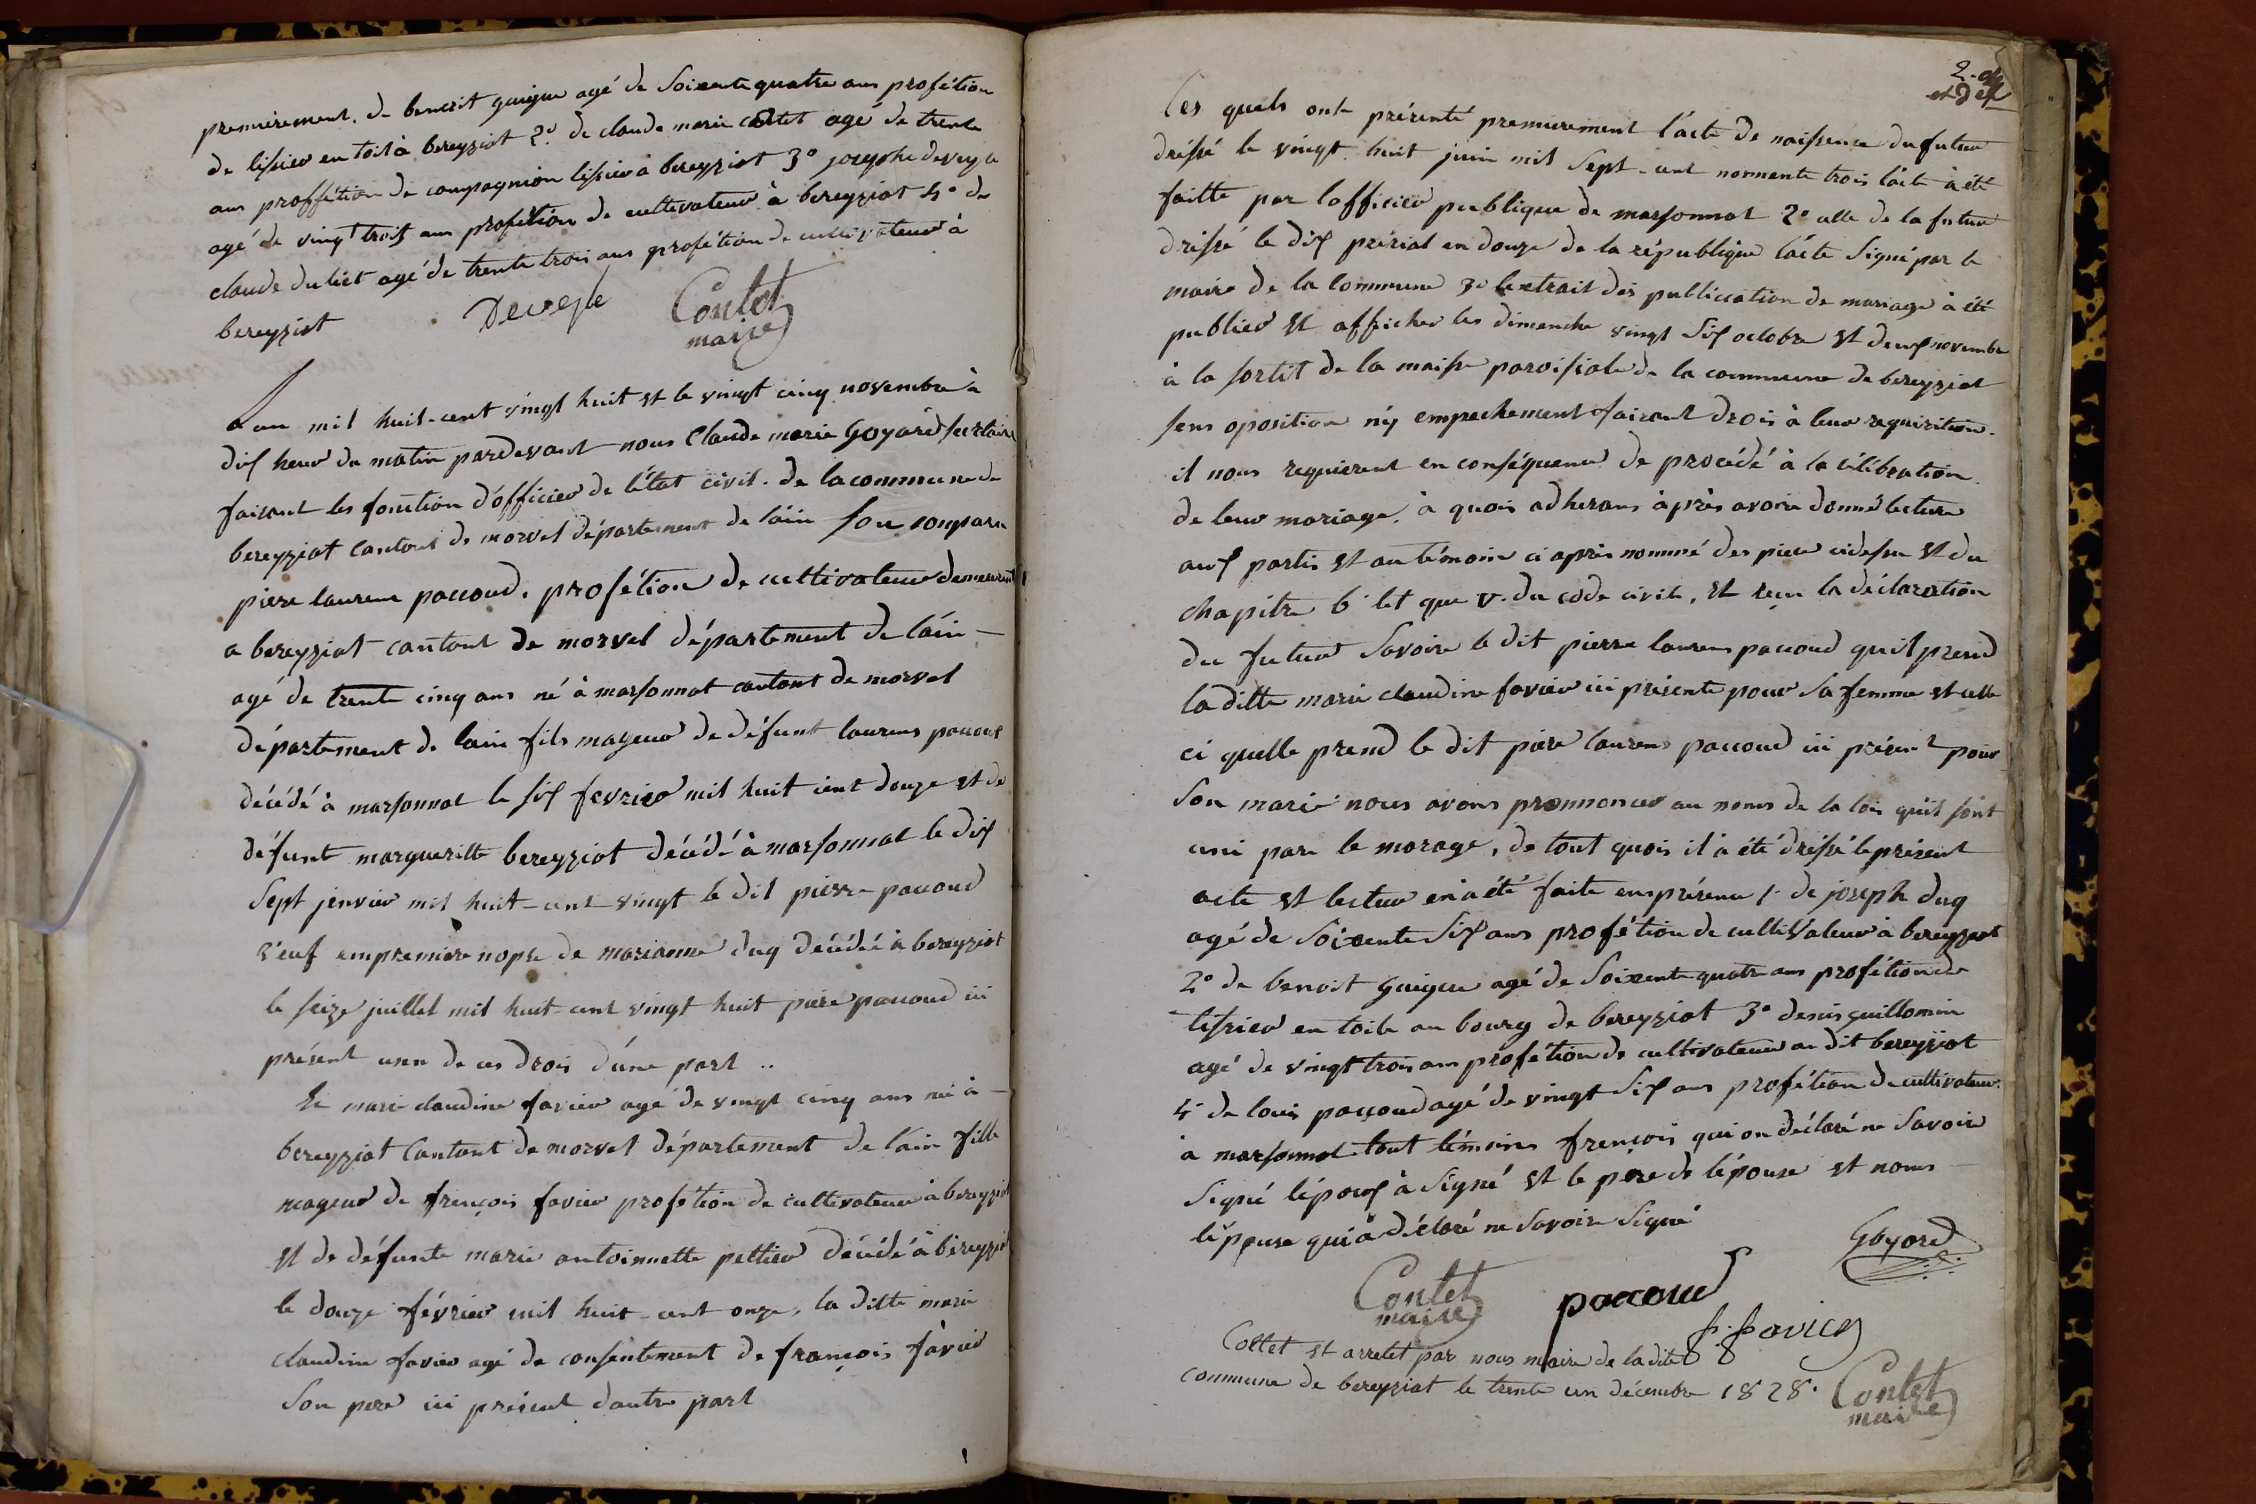 premièrement. de benoit guigue agé de Soixente quatre ans profétion
de tissieu en toil à bereyziat 2.º de claude marie contet agé de trente
ans proffétion de compagnion tissieu a bereyziat 3º josephe
agé de vingt trois ans profétion de cultivateur à bereyziat 4º de
claude duliet agé de trente trois ans profétion de cultivateur à
bereyziat
Contet
maire
L'an mil huit-cent vingt huit et le vingt cinq novembre à
dix heur du matin pardevant nous Claude marie Goyard
faisant les fonction d'officier de l'état civil. de la commune de
bereyziat Cantont de morvel département de l'ain son comparu
piere laurens paccoud. profétion de cultivateur demeurent
a bereyziat cantont de morvel département de l'ain —
agé de trente cinq ans né à marsonnat cantont de morvel
département de lain fils mageur de défunt laurens paccoud
décédé à marsonnat le six fevrier mil huit cent douze et de
défunt margueritte bereyziat décédé à marsonnat le dix
Sept jenvier mil huit-cent vingt le dit pierre paccoud
veuf empremiere nopse de marianne duq décédée à bereyziat
le seize juillet mil huit-cent vingt huit piere paccoud ici
présent usen de ces drois d'une part ..
Et marie claudine favier agé de vingt cinq ans né à —
bereyziat Cantont de morvel département de l'ain fille
mageur de françois favier profetion de cultivateur à bereyziat
et de défunte marie antoinnette pettieu décédé à bereyziat
le douze février mil huit-cent onze, la ditte marie
claudine favier agé de consentement de françois favier
Son pere ici présent dautre part
Les quels onte présenté premierement l'acte de naissence du futur
dréssé le vingt-huit juin mil Sept-cent nonnente trois l'acte à été
faitte par lofficier publique de marsonnat 2º celle de la futur
dréssé le dix prérial en douze de la république l'acte Signé par le
maire de la Commune 3º lextrait des publication de mariage à été
publier et afficher les dimenche vingt Six octobre et deux novembre
à la sortit de la maisse paroissiale de la commune de bereyziat
sens oposition ny empechement faisant drois à leur requisition.
il nous requierent en conséquence de procédé à la célébration
de leur mariage. à quois adherans après avoir donné lecture
aux partis et au témoin ci après nommé des piece cidessu et du
chapitre 6 du code civil, et reçu la déclaration
du futur Savoire le dit pierre laurens paccoud quil prend
la ditte marie claudine favier ici présente pour Sa femme et celle
ci quelle prend le dit piere laurens paccoud ici présent pour
Son marie nous avons pronnoncer au noms de la lois qu'il sont
uni pare le marage, de tout quois il à été dréssé le présent
acte et lectur en a été faite en présence 1. de joseph duq
agé de Soixente Six ans profétion de cultivateur à bereyziat
2º de benoit guigue agé de Soixente quatre ans profétion de
tissieu en toile au bourg de bereyziat 3º denis guillomin
agé de vingt trois ans profétion de cultivateur au dit bereyziat
4º de louis paccoud agé de vingt Six ans profétion de cultivateur.
à marsonnat tout témoins françois qui on déclaré ne Savoir
Signé l'époux à Signé et le pere de l'épouse et nous —
l'épouse qui à déclaré ne Savoire Signé
Goyard
Contet
maire
paccoud
f. favier
Collet et arretet par nous maire de la dite
commune de bereyziat le trente un décembre 1828.
Contet
maire